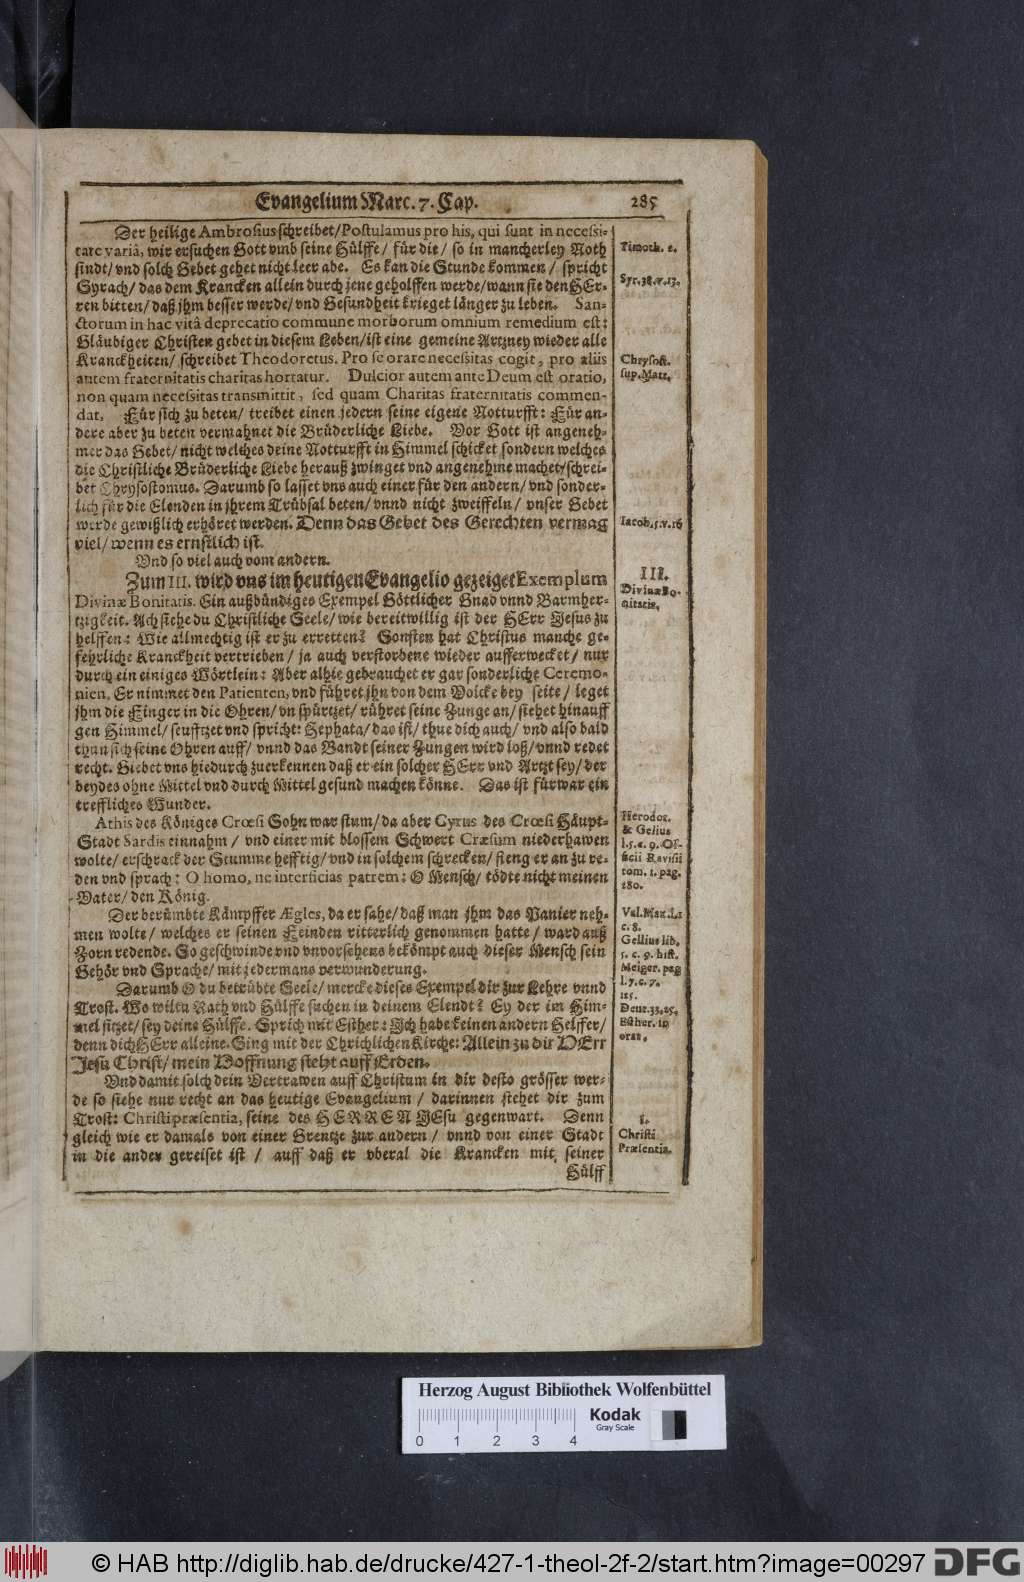 Evangelium Marc. 7. Cap. 285
Der heilige Ambrosius schreibet/ Postulamus pro his, qui sunt in necessi-
tate variâ, wir ersuchen Gott vmb seine Hülffe/ für die/ so in mancherley Noth
sindt/ vnd solch Gebet gehet nicht leer abe. Es kan die Stunde kommen/ spricht
Syrach/ das dem Krancken allein durch jene geholffen werde/ wann sie den HEr-
ren bitten/ daß jhm besser werde/ vnd Gesundheit krieget länger zu leben. San-
ctorum in hac vitâ deprecatio commune morborum omnium remedium est:
Gläubiger Christen gebet in diesem Leben/ ist eine gemeine Artzney wieder alle
Kranckheiten/ schreibet Theodoretus. Pro se orare necessitas cogit, pro aliis
autem fraternitatis charitas hortatur. Dulcior autem ante Deum est oratio,
non quam necessitas transmittit, sed quam Charitas fraternitatis commen-
dat, Für sich zu beten/ treibet einen jedern seine eigene Notturfft: Für an-
dere aber zu beten vermahnet die Brüderliche Liebe. Vor Gott ist angeneh-
mer das Gebet/ nicht welches deine Notturfft in Himmel schicket sondern welches
die Christliche Brüderliche Liebe herauß zwinget vnd angenehme machet/ schrei-
bet Chrysostomus. Darumb so lasset vns auch einer für den andern/ vnd sonder-
lich für die Elenden in jhrem Trübsal beten/ vnnd nicht zweiffeln/ vnser Gebet
werde gewißlich erhöret werden. Denn das Gebet des Gerechten vermag
viel/ wenn es ernstlich ist.
Vnd so viel auch vom andern.
Zum III. wird vns im heutigen Evangelio gezeiget Exemplum
Divinæ Bonitatis. Ein außbündiges Exempel Göttlicher Gnad vnnd Barmher-
tzigkeit. Ach siehe du Christliche Seele/ wie bereitwillig ist der HErr Jesus zu
helffen: Wie allmechtig ist er zu erretten? Sonsten hat Christus manche ge-
fehrliche Kranckheit vertrieben/ ja auch verstorbene wieder aufferwecket/ nur
durch ein einiges Wörtlein: Aber alhie gebrauchet er gar sonderliche Ceremo-
nien. Er nimmet den Patienten, vnd führet jhn von dem Volcke bey seite/ leget
jhm die Finger in die Ohren/ vn spürtzet/ rühret seine Zunge an/ siehet hinauff
gen Himmel/ seufftzet vnd spricht: Hephata/ das ist/ thue dich auch/ vnd also bald
thun sich seine Ohren auff/ vnnd das Bandt seiner Zungen wird loß/ vnnd redet
recht. Giebet vns hiedurch zuerkennen daß er ein solcher HErr vnd Artzt sey/ der
beydes ohne Mittel vnd durch Mittel gesund machen könne. Das ist fürwar ein
treffliches Wunder.
Athis des Königes Crœsi Sohn war stum/ da aber Cyrus des Crœsi Häupt-
Stadt Sardis einnahm/ vnd einer mit blossem Schwert Cræsum niederhawen
wolte/ erschrack der Stumme hefftig/ vnd in solchem schrecken/ fieng er an zu re-
den vnd sprach: O homo, ne interficias patrem: O Mensch/ tödte nicht meinen
Vater/ den König.
Der berümbte Kämpffer Ægles, da er sahe/ daß man jhm das Panier neh-
men wolte/ welches er seinen Feinden ritterlich genommen hatte/ ward auß
Zorn redende. So geschwinde vnd vnvorsehens bekömpt auch dieser Mensch sein
Gehör vnd Sprache/ mit jedermans verwunderung.
Darumb O du betrübte Seele/ mercke dieses Exempel dir zur Lehre vnnd
Trost. Wo wiltu Rath vnd Hülffe suchen in deinem Elendt? Ey der im Him-
mel sitzet/ sey deine Hülffe. Sprich mit Esther: Ich habe keinen andern Helffer/
denn dich HErr alleine. Sing mit der Chrichlichen Kirche: Allein zu dir HErr
Jesu Christ/ mein Hoffnung steht auff Erden.
Vnd damit solch dein Vertrawen auff Christum in dir desto grösser wer-
de so siehe nur recht an das heutige Evangelium/ darinnen stehet dir zum
Trost: Christi præsentia, seine des HERREN JEsu gegenwart. Denn
gleich wie er damals von einer Grentze zur andern/ vnnd von einer Stadt
in die ander gereiset ist/ auff daß er vberal die Krancken mit seiner
Hülff
Timoth. 2.
Syr. 38. v. 13.
Chrysost.
sup. Matt.
Iacob. 5. v. 16
III.
Divinæ Bo-
nitatis.
Herodot.
& Gelius
l. 5. c. 9. Of-
ficii Ravisii
tom. 1. pag.
180.
Val. Max. l. 1
c. 8.
Gellius lib.
5. c. 9. hist.
Meiger. pag
l. 7. c. 7.
125.
Deut. 33, 25.
Esther. in
orat.
1.
Christi
Præsentia.
Herzog August Bibliothek Wolfenbüttel
0 1 2 3 4
Kodak
Gray Scale
© HAB http://diglib.hab.de/drucke/427-1-theol-2f-2/start.htm?image=00297
DFG